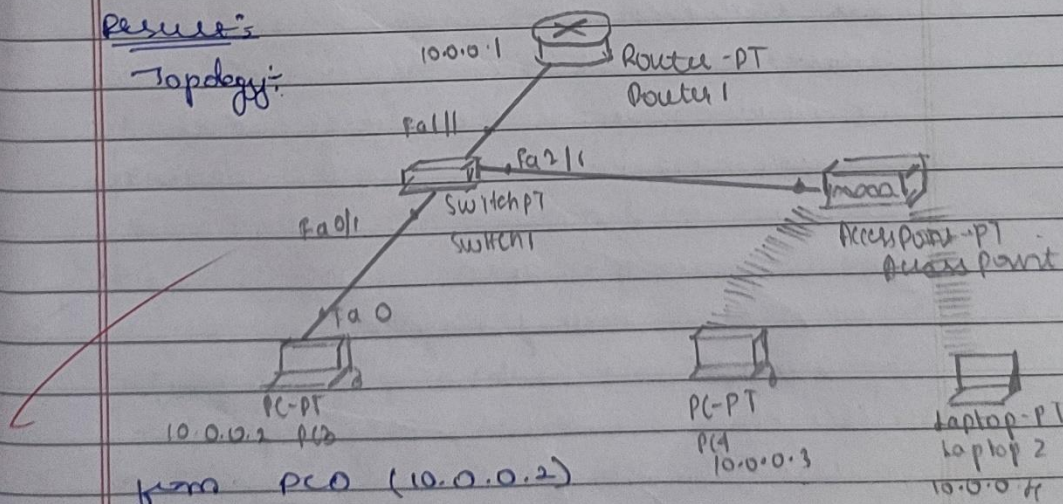 Result:
Topology:-
10.0.0.1
Router-PT
Router1
Fa1/1
Fa2/1
SwitchPT
Switch1
AccessPoint-PT
Access Point
Fa0/1
Fa0
PC-PT
10.0.0.2
PC-PT
10.0.0.3
Laptop-PT
Laptop 2
from PC0 (10.0.0.2)